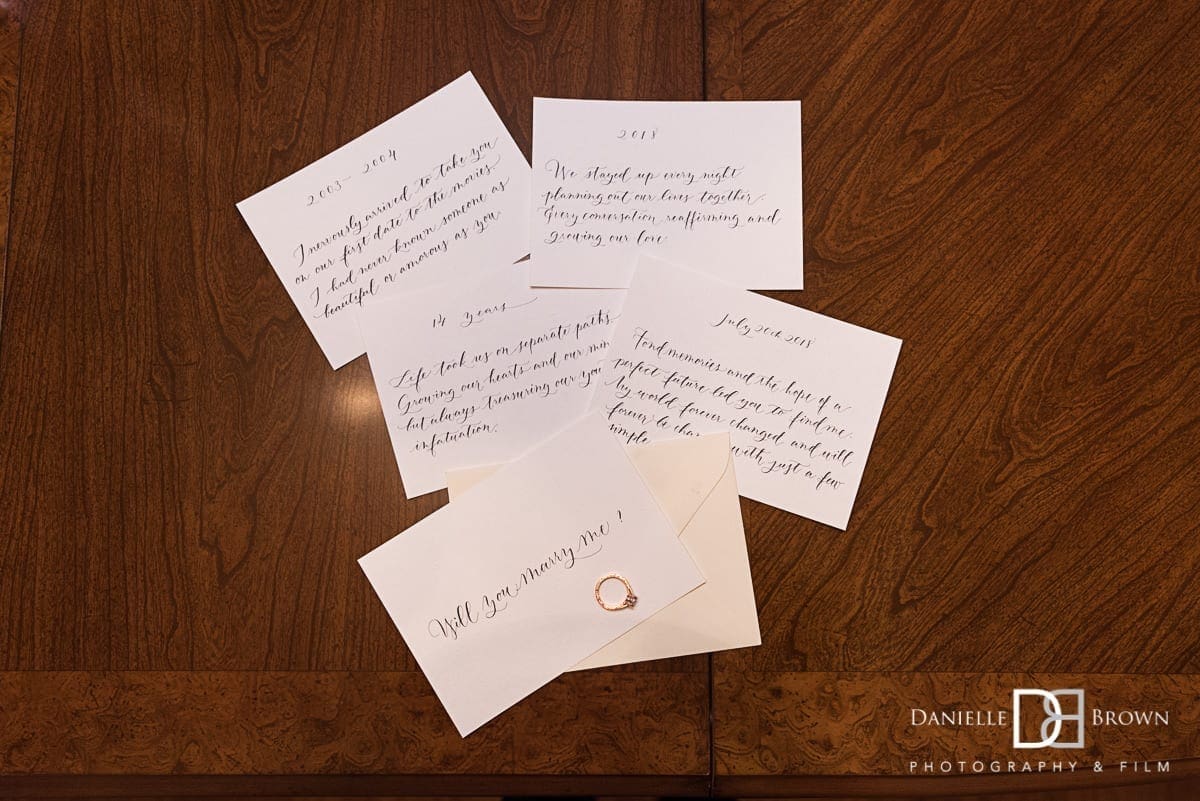 2003- 2004
I nervously arrived to take you
on our first date to the movies.
I had never known someone as
beautiful or amorous as you
2018
We stayed up every night
planning out our lives together.
Every conversation reaffirming and
growing our love
14 years
Life took us on separate paths.
Growing our hearts and our
but always treasuring our
infatuation.
July 20th 2018
Fond memories and the hope of a
perfect future led you to find me.
My world forever changed and will
forever be with just a few
simple
Will you marry me!
DANIELLE DB BROWN
PHOTOGRAPHY & FILM